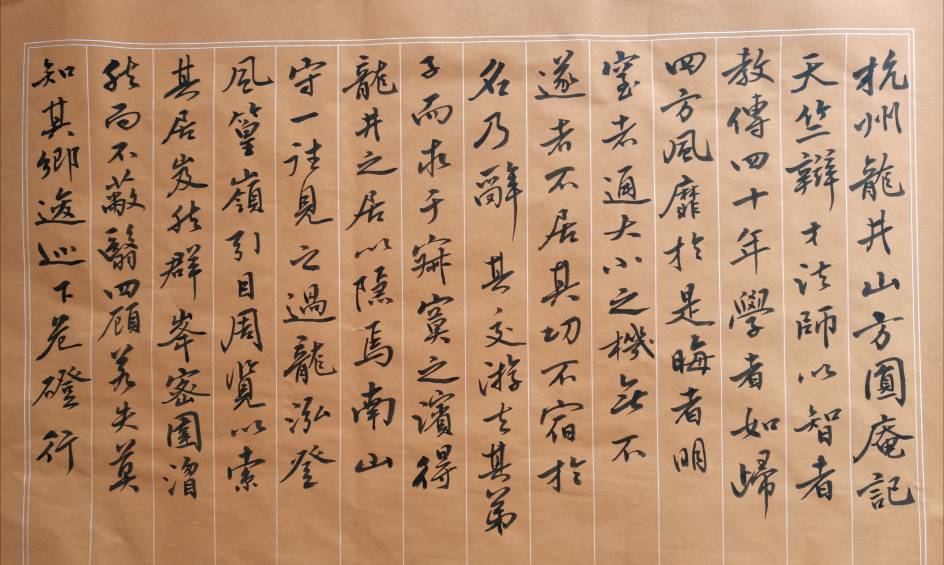 杭州龍井山方圓庵記
天竺辯才法師以智者
教傳四十年學者如歸
四方風靡於是晦者明
窒者通大小之機無不
遂者不居其功不宿於
名乃辭其交游去其弟
子而求于寂寞之濱得
龍井之居以隱焉南山
守一往見之過龍泓登
風篁嶺引目周覽以索
其居岌然群峯密圍溍
然而不蔽翳四顧若失莫
知其鄉逡巡下危磴行